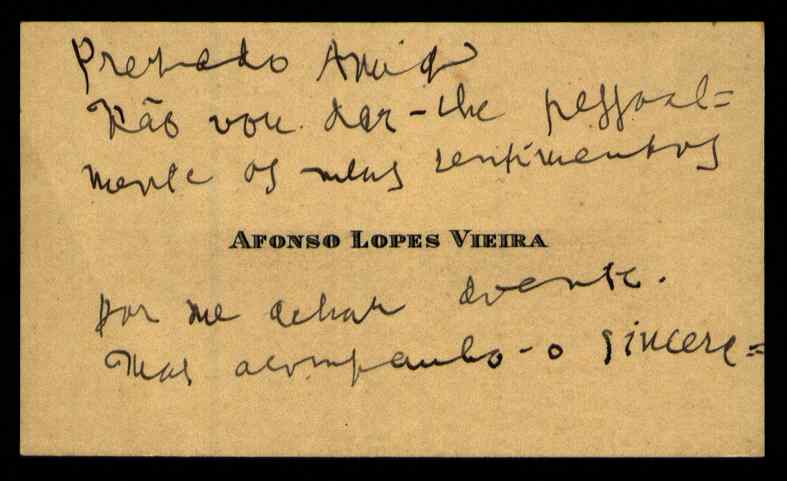 Prezado Amigo
Não vou dar-lhe pessoal=
mente os meus sentimentos
AFONSO LOPES VIEIRA
por me achar doente.
Mas acompanho-o sincera=